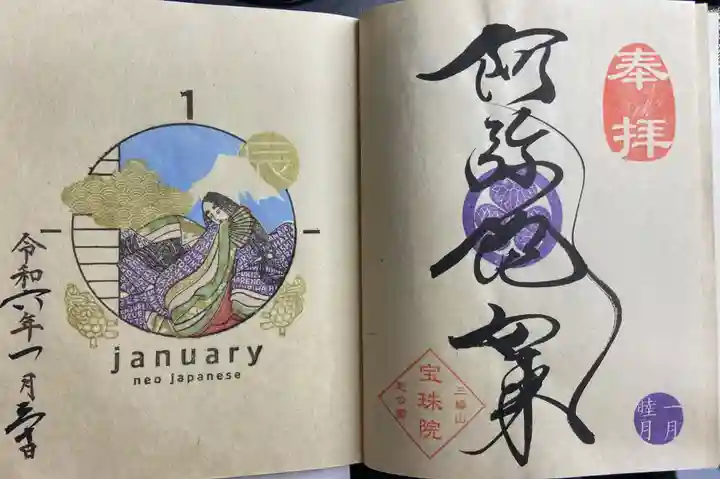 1
january
neo japanese
令和六年一月三十日
奉拝
阿弥陀如来
三縁山
宝珠院
一月
睦月